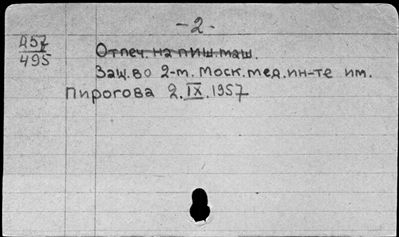 -2-
А57
495
Отпеч. на пиш. маш.
Защ. во 2-т. Моск. мед. ин-те им.
Пирогова 2.IX.1957